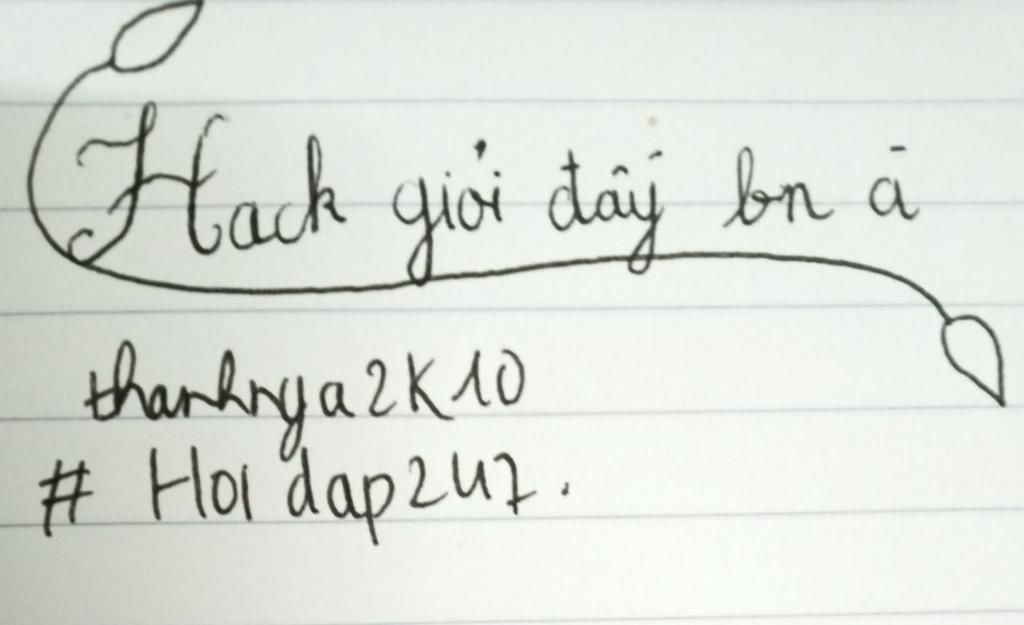 Hack giỏi đấy bn ạ
thanhnya2K10
# Hoi dap247.